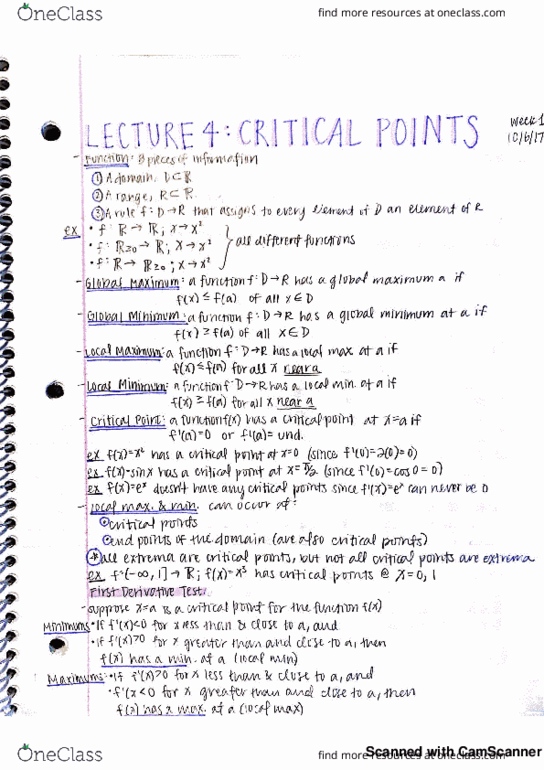 OneClass
find more resources at oneclass.com
LECTURE 4: CRITICAL POINTS
Week 1
10/6/17
- Function: 3 pieces of information
① A domain, D⊂ℝ
② A range, R⊂ℝ
③ A rule f: D→R that assigns to every element of D an element of R
ex • f: ℝ→ℝ; x→x²
• f: ℝ≥0→ℝ; x→x²
• f: ℝ→ℝ≥0; x→x²
all different functions
- Global Maximum: a function f: D→R has a global maximum a if
f(x) ≤ f(a) of all x∈D
- Global Minimum: a function f: D→R has a global minimum at a if
f(x) ≥ f(a) of all x∈D
- Local Maximum: a function f: D→R has a local max at a if
f(x) ≤ f(a) for all x near a
- Local Minimum: a function f: D→R has a local min. at a if
f(x) ≥ f(a) for all x near a
- Critical Point: a function f(x) has a critical point at x=a if
f'(a)=0 or f'(a)= und.
ex f(x)=x² has a critical point at x=0 (since f'(0)=2(0)=0)
ex f(x)=sinx has a critical point at x=π/2 (since f'(0)=cos0=0)
ex f(x)=eˣ doesn't have any critical points since f'(x)=eˣ can never be 0
- local max. & min. can occur at:
critical points
end points of the domain (are also critical points)
* all extrema are critical points, but not all critical points are extrema
ex f: (-∞, 1]→ℝ; f(x)=x³ has critical points @ x=0, 1
First Derivative Test:
- suppose x=a is a critical point for the function f(x)
Minimums • If f'(x)<0 for x less than & close to a, and
• if f'(x)>0 for x greater than and close to a, then
f(x) has a min. at a (local min)
Maximums: • If f'(x)>0 for x less than & close to a, and
• f'(x<0 for x greater than and close to a, then
f(x) has a max. at a (local max)
OneClass
find more resources at oneclass.com
Scanned with CamScanner